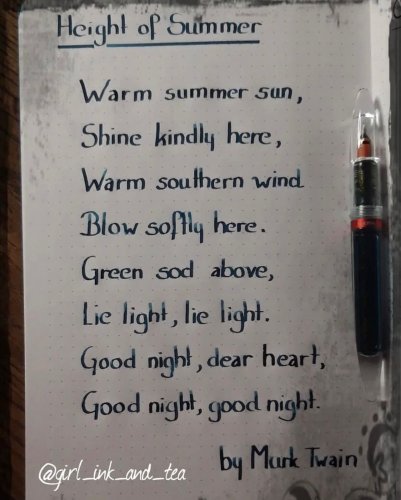 Height of Summer
Warm summer sun,
Shine kindly here,
Warm southern wind
Blow softly here.
Green sod above,
Lie light, lie light.
Good night, dear heart,
Good night, good night.
by Mark Twain
@girl_ink_and_tea